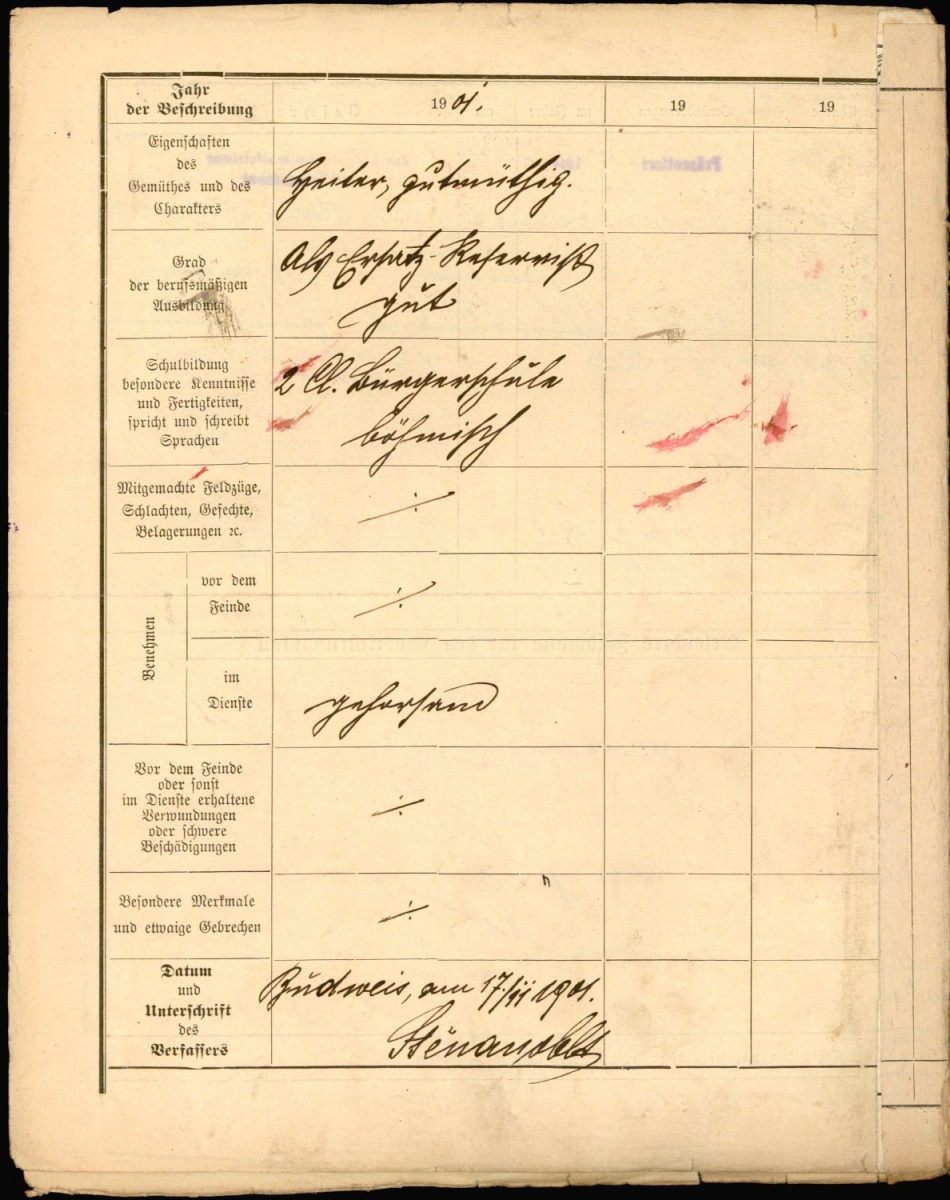 Jahr
der Beschreibung
1901.
19
19
Eigenschaften
des
Gemüthes und des
Charakters
Heiter, gutmüthig.
Grad
der berufsmäßigen
Ausbildung
Als Ersatz-Reservist
gut
Schulbildung
besondere Kenntnisse
und Fertigkeiten,
spricht und schreibt
Sprachen
2 Cl. Bürgerschule
böhmisch
Mitgemachte Feldzüge,
Schlachten, Gefechte,
Belagerungen ꝛc.
÷
Benehmen
vor dem
Feinde
÷
im
Dienste
gehorsam
Vor dem Feinde
oder sonst
im Dienste erhaltene
Verwundungen
oder schwere
Beschädigungen
÷
Besondere Merkmale
und etwaige Gebrechen
÷
Datum
und
Unterschrift
des
Verfassers
Budweis, am 17/11 1901.